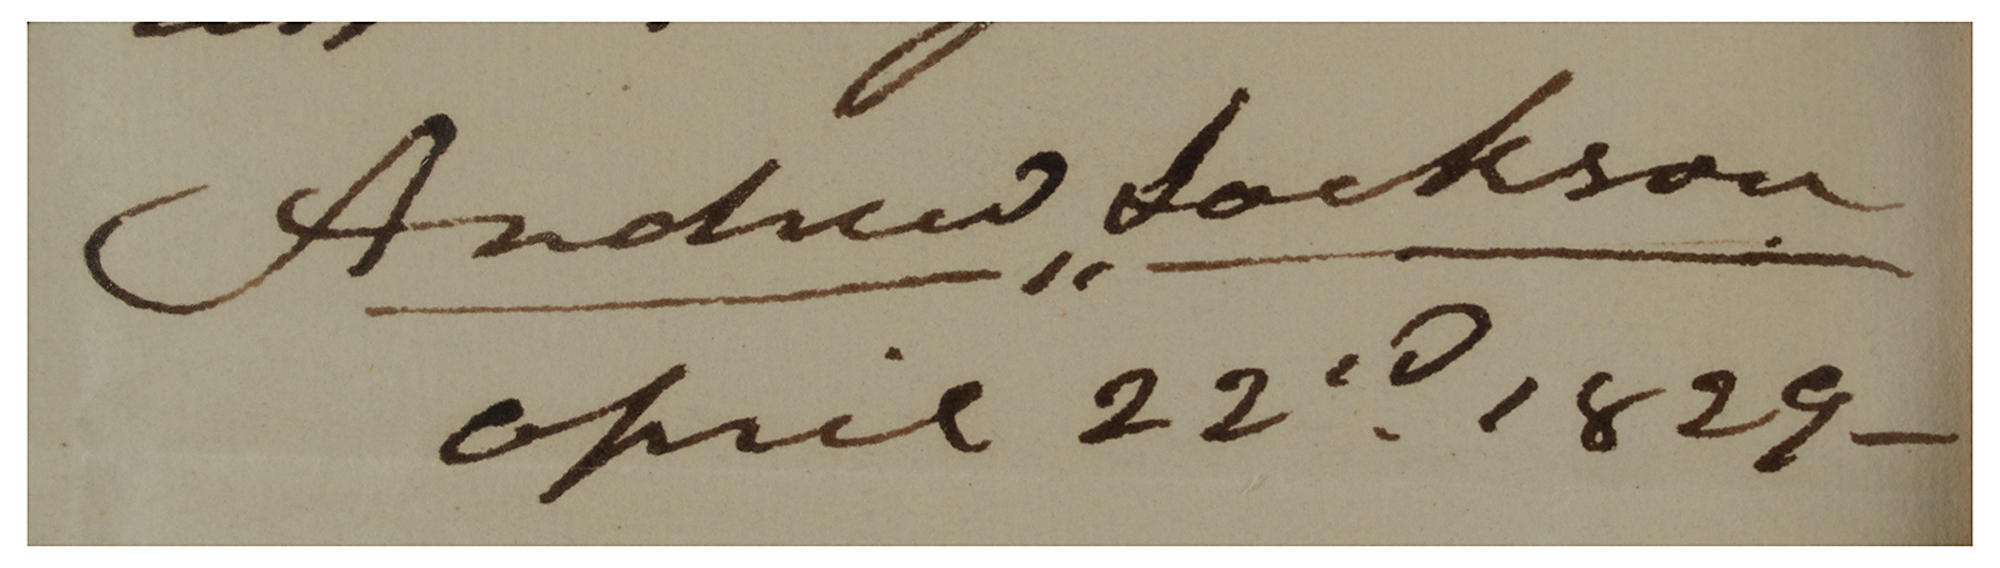 Andrew Jackson
april 22d 1829